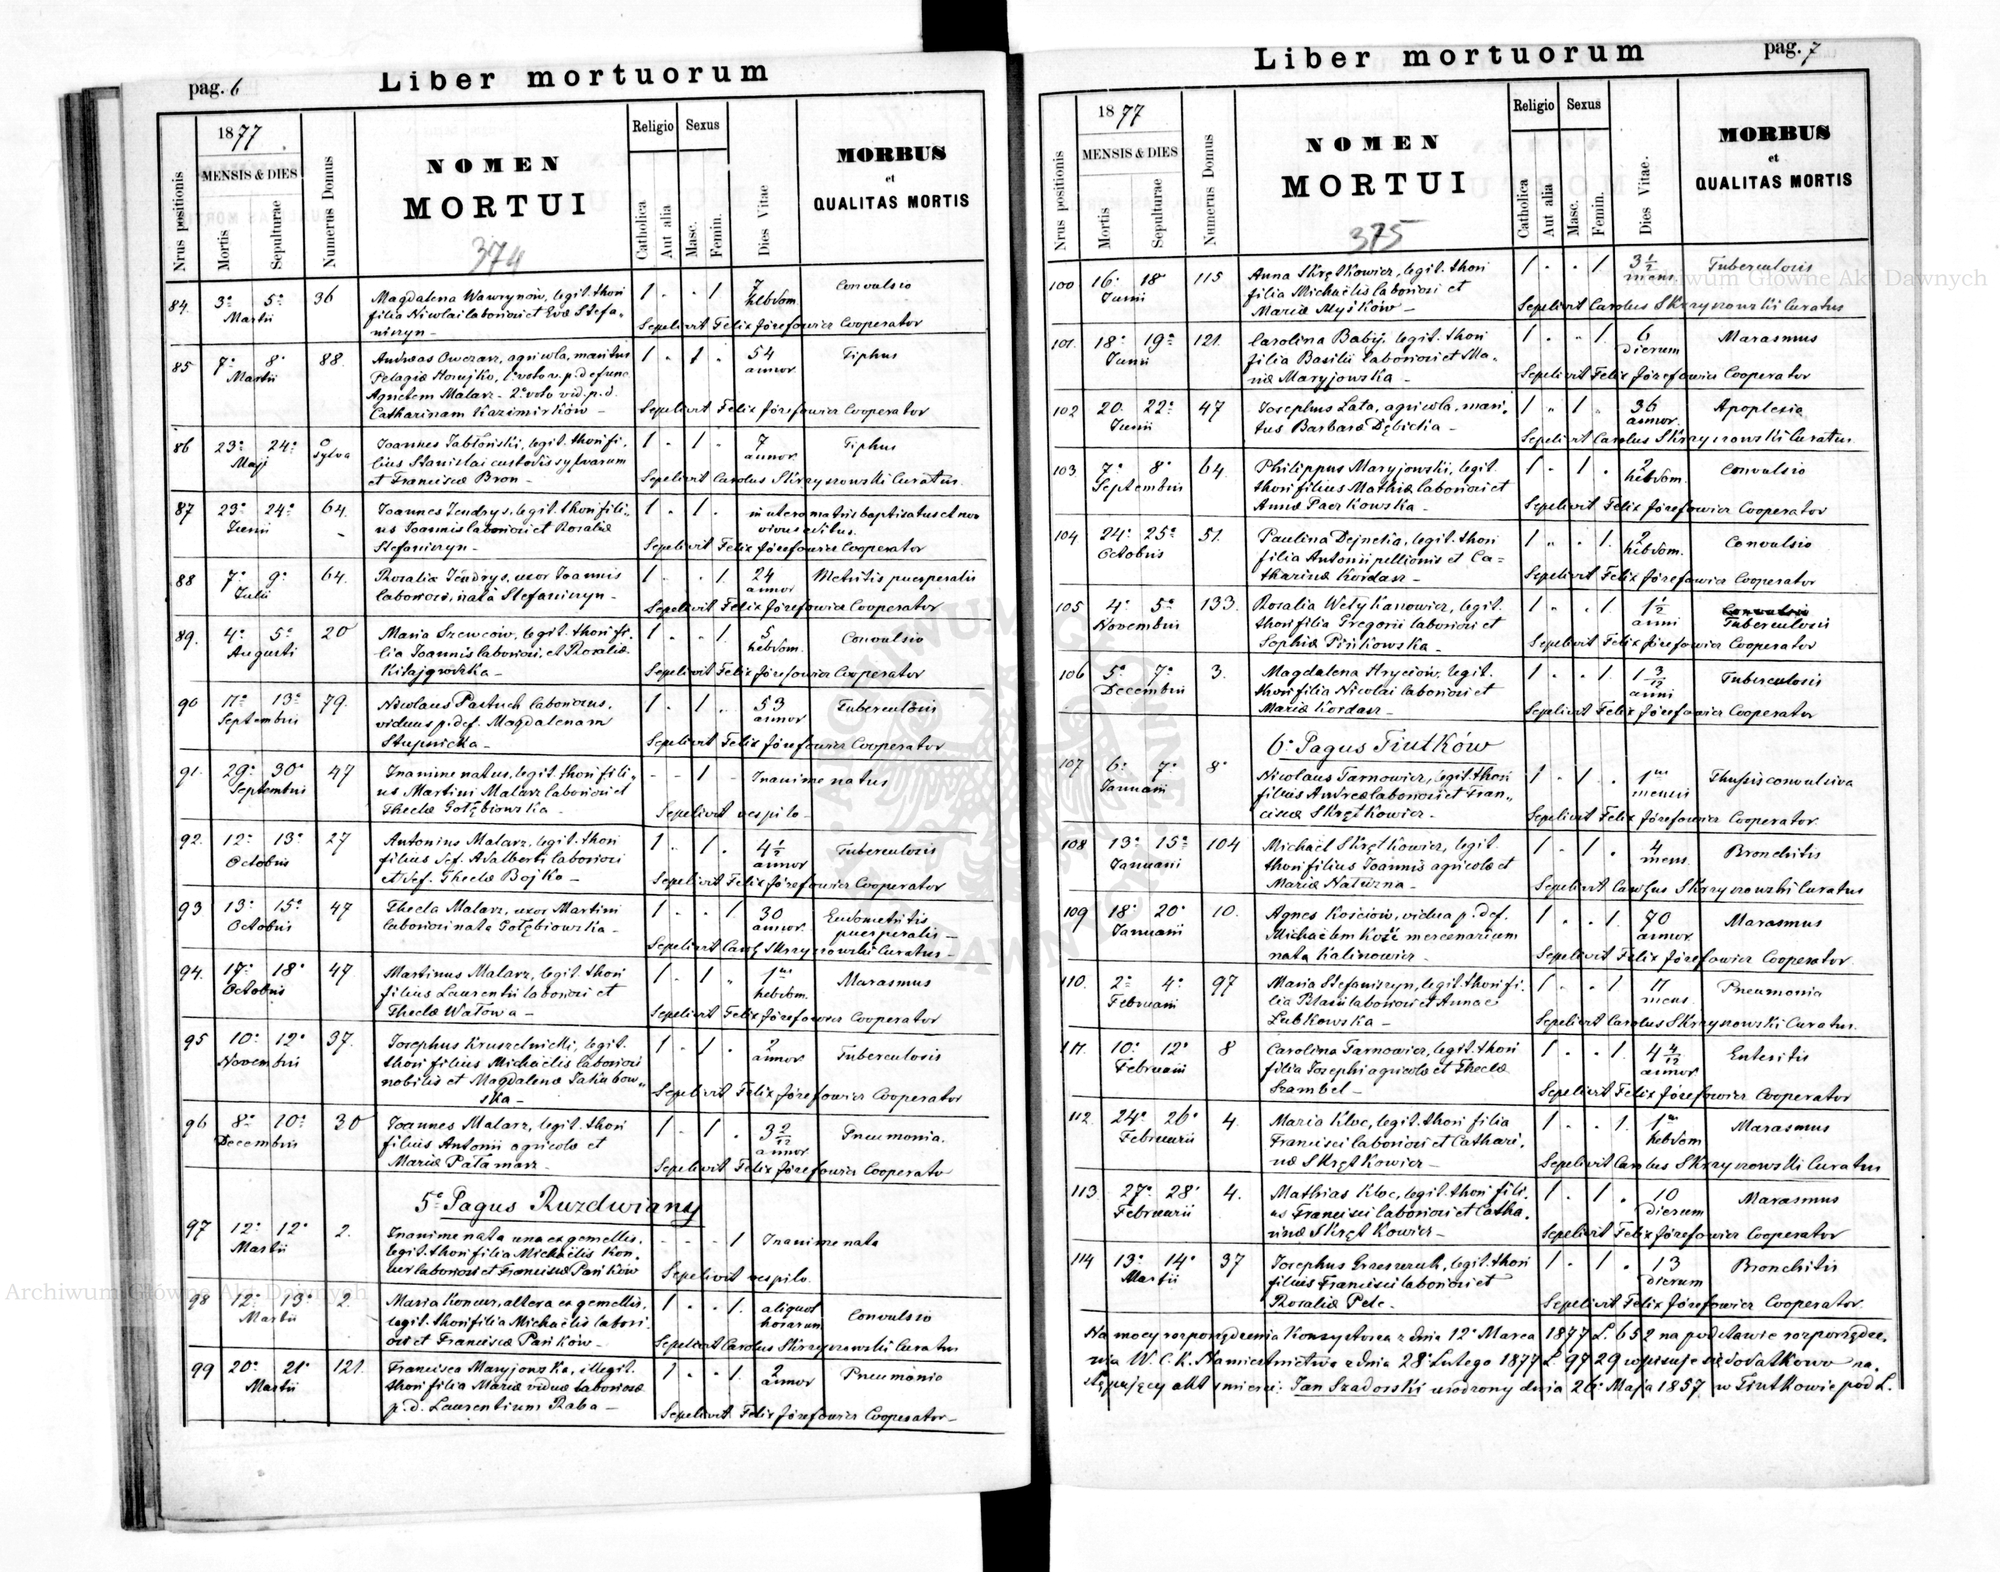 pag. 6
Liber mortuorum
1877
MENSIS & DIES
Nrus positionis
Mortis
Sepulturae
Numerus Domus
NOMEN
MORTUI
374
Religio
Sexus
Catholica
Aut alia
Masc.
Femin.
Dies Vitae
MORBUS
et
QUALITAS MORTIS
84. 3a 5a 36 Magdalena Wawrynów, legit. thori 1 . . 1 7 Convulsio
Martii filia Nicolai laboriosi et Evae Stefa- hebdom.
niszyn - Sepelivit Felix Józefowicz Cooperator
85 7a 8a 88. Andreas Owczarz, agricola, maritus 1 . 1 . 54 Tiphus
Martii Pelagiae Horujko, 1o voto v. p. defunc annor.
Agnetem Malarz - 2o voto vid. p. d.
Catharinam Kazimirków - Sepelivit Felix Józefowicz Cooperator
86 23a 24a Sylva Joannes Jabłoński, legit. thori fi- 1 . 1 . 7 Tiphus
Maji lius Stanislai custodis sylvarum annor.
et Franciscae Bron - Sepelivit Carolus Skrzyszowski Curatus.
87 23a 24a 64. Joannes Jendrys, legit. thori fili- 1 . 1 . in utero matris baptisatus et non
Junii us Joannis laboriosi et Rosaliae vivus editus.
Stefaniszyn - Sepelivit Felix Józefowicz Cooperator
88 7a 9a 64. Rosalia Jendrys, uxor Joannis 1 . . 1. 24 Metritis puerperalis
Julii laboriosi, nata Stefaniszyn - annor
Sepelivit Felix Józefowicz Cooperator
89. 4a 5a 20 Maria Szewców, legit. thori fi- 1 . . 1. 5 Convulsio
Augusti lia Joannis laboriosi, et Rosaliae hebdom.
Kitajgrodzka - Sepelivit Felix Józefowicz Cooperator
90 11a 13a 79. Nicolaus Pastuch laboriosus, 1 . 1 . 53 Tuberculosis
Septembris viduus p. def. Magdalenam annor
Stupnicka - Sepelivit Felix Józefowicz Cooperator
91. 29a 30a 47 Inanime natus, legit. thori fili- - - 1 - Inanime natus
Septembris us Martini Malarz laboriosi et
Theclae Gołębiowska - Sepelivit vespilo -
92. 12a 13a 27 Antonius Malarz, legit. thori 1 . 1 . 4 1/2 Tuberculosis
Octobris filius def. Adalberti laboriosi annor
et def. Theclae Bojko - Sepelivit Felix Józefowicz Cooperator
93 13a 15a 47 Thecla Malarz, uxor Martini 1 . . 1 30 Endometritis
Octobris laboriosi nata Gołębiowska - annor. puerperalis -
Sepelivit Car. Skrzyszowski Curatus -
94. 17a 18a 47 Martinus Malarz, legit. thori 1 . 1 . 1na Marasmus
Octobris filius Laurentii laboriosi et hebdom.
Theclae Watowa - Sepelivit Felix Józefowicz Cooperator
95 10a 12a 37. Josephus Kruszelnicki, legit. 1 . 1 . 2 Tuberculosis
Novembris thori filius Michaëlis laboriosi annor.
nobilis et Magdalenae Jakubow-
ska - Sepelivit Felix Józefowicz Cooperator
96 8a 10a 30 Joannes Malarz, legit. thori 1 . 1 . 3 2/12 Pneumonia.
Decembris filius Antonii agricolae et annor
Mariae Pałamarz - Sepelivit Felix Józefowicz Cooperator
5o Pagus Ruzdwiany
97 12a 12a 2. Inanime nata una ex gemellis, - - - 1 Inanime nata
Martii legit. thori filia Michaëlis Kon-
cur laboriosi et Franciscae Pańków Sepelivit vespilo.
98 12a 13a 2. Maria Koncur, altera ex gemellis, 1 . . 1. aliquot Convulsio
Martii legit. thori filia Michaëlis labori- horarum
osi et Franciscae Pańków - Sepelivit Carolus Skrzyszowski Curatus
99 20a 21a 121. Francisca Maryjowska, illegit. 1 . . 1. 2 Pneumonia
Martii thori filia Mariae viduae laboriosae annor
p. d. Laurentium Raba - Sepelivit Felix Józefowicz Cooperator -
pag. 7
Liber mortuorum
1877
MENSIS & DIES
Nrus positionis
Mortis
Sepulturae
Numerus Domus
NOMEN
MORTUI
375
Religio
Sexus
Catholica
Aut alia
Masc.
Femin.
Dies Vitae.
MORBUS
et
QUALITAS MORTIS
100 16a 18a 115 Anna Skrętkowicz, legit. thori 1 . . 1 3 1/2 Tuberculosis
Junii filia Michaëlis laboriosi et mens.
Mariae Myśków - Sepelivit Carolus Skrzyszowski Curatus
101. 18a 19a 121. Carolina Babij, legit. thori 1 . . 1. 6 Marasmus
Junii filia Basilii laboriosi et Ma- dierum
riae Maryjowska - Sepelivit Felix Józefowicz Cooperator
102 20. 22a 47 Josephus Lata, agricola, mari- 1 . 1 . 36 Apoplexia
Junii tus Barbarae Dębicka - annor.
Sepelivit Carolus Skrzyszowski Curatus
103 7a 8a 64. Philippus Maryjowski, legit. 1 . 1 . 2 Convulsio
Septembris thori filius Mathiae laboriosi et hebdom.
Annae Paczkowska - Sepelivit Felix Józefowicz Cooperator
104 24a 25a 51. Paulina Dejneka, legit. thori 1 . . 1. 2 Convulsio
Octobris filia Antonii pellionis et Ca- hebdom.
tharinae Kordasz - Sepelivit Felix Józefowicz Cooperator
105 4a 5a 133. Rosalia Wetykanowicz, legit. 1 . . 1. 1 1/2 Convulsio
Novembris thori filia Gregorii laboriosi et anni Tuberculosis
Sophiae Pińkowska - Sepelivit Felix Józefowicz Cooperator
106 5a 7a 3. Magdalena Hryciów, legit. 1 . . 1. 1 3/12 Tuberculosis
Decembris thori filia Nicolai laboriosi et anni
Mariae Kordasz - Sepelivit Felix Józefowicz Cooperator
6o Pagus Tiutków
107 6a 7a 8 Nicolaus Tarnowicz, legit. thori 1 . 1 . 1us Thussis convulsiva
Januarii filius Andreae laboriosi et Fran- mensis
ciscae Skrętkowicz - Sepelivit Felix Józefowicz Cooperator.
108 13a 15a 104 Michaël Skrętkowicz, legit. 1 . 1 . 4 Bronchitis
Januarii thori filius Joannis agricolae et mens.
Mariae Natuzna - Sepelivit Carolus Skrzyszowski Curatus
109 18a 20a 10. Agnes Kościów, vidua p. def. 1 . . 1. 70 Marasmus
Januarii Michaëlem Kość mercenarium annor.
nata Kalinowicz - Sepelivit Felix Józefowicz Cooperator.
110. 2a 4a 97 Maria Stefaniszyn, legit. thori fi- 1 . . 1 11 Pneumonia
Februarii lia Blasii laboriosi et Annae mens.
Lubkowska - Sepelivit Carolus Skrzyszowski Curatus.
111. 10a 12a 8 Carolina Tarnowicz, legit. thori 1 . . 1. 4 4/12 Enteritis
Februarii filia Josephi agricolae et Theclae annor
Szambel - Sepelivit Felix Józefowicz Cooperator
112. 24a 26a 4. Maria Kloc, legit. thori filia 1 . . 1. 1na Marasmus
Februarii Francisci laboriosi et Cathari- hebdom
nae Skrętkowicz - Sepelivit Carolus Skrzyszowski Curatus
113. 27a 28a 4. Mathias Kloc, legit. thori fili- 1 . 1 . 10 Marasmus
Februarii us Francisci laboriosi et Catha- dierum
rinae Skrętkowicz - Sepelivit Felix Józefowicz Cooperator
114 13a 14a 37 Josephus Grzeszczuk, legit. thori 1 . 1 . 13 Bronchitis
Martii filius Francisci laboriosi et dierum
Rosaliae Petc - Sepelivit Felix Józefowicz Cooperator.
Na mocy rozporządzenia Konzystorza z dnia 12o Marca 1877 L. 652 na podstawie rozporządze-
nia W. C. K. Namiestnictwa z dnia 28o Lutego 1877 L. 9729 wpisuje się dodatkowo na-
stępujący akt śmierci: Jan Szadorski urodzony dnia 26o Maja 1857 w Tiutkowie pod L.
Archiwum Główne Akt Dawnych
Archiwum Główne Akt Dawnych
ARCHIWUM GŁÓWNE AKT DAWNYCH